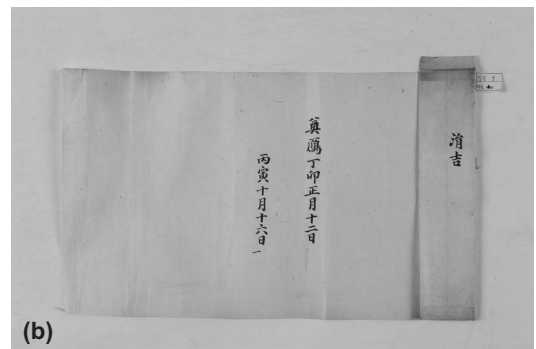 涓吉
奠鴈丁卯正月十二日
丙寅十月十六日
(b)